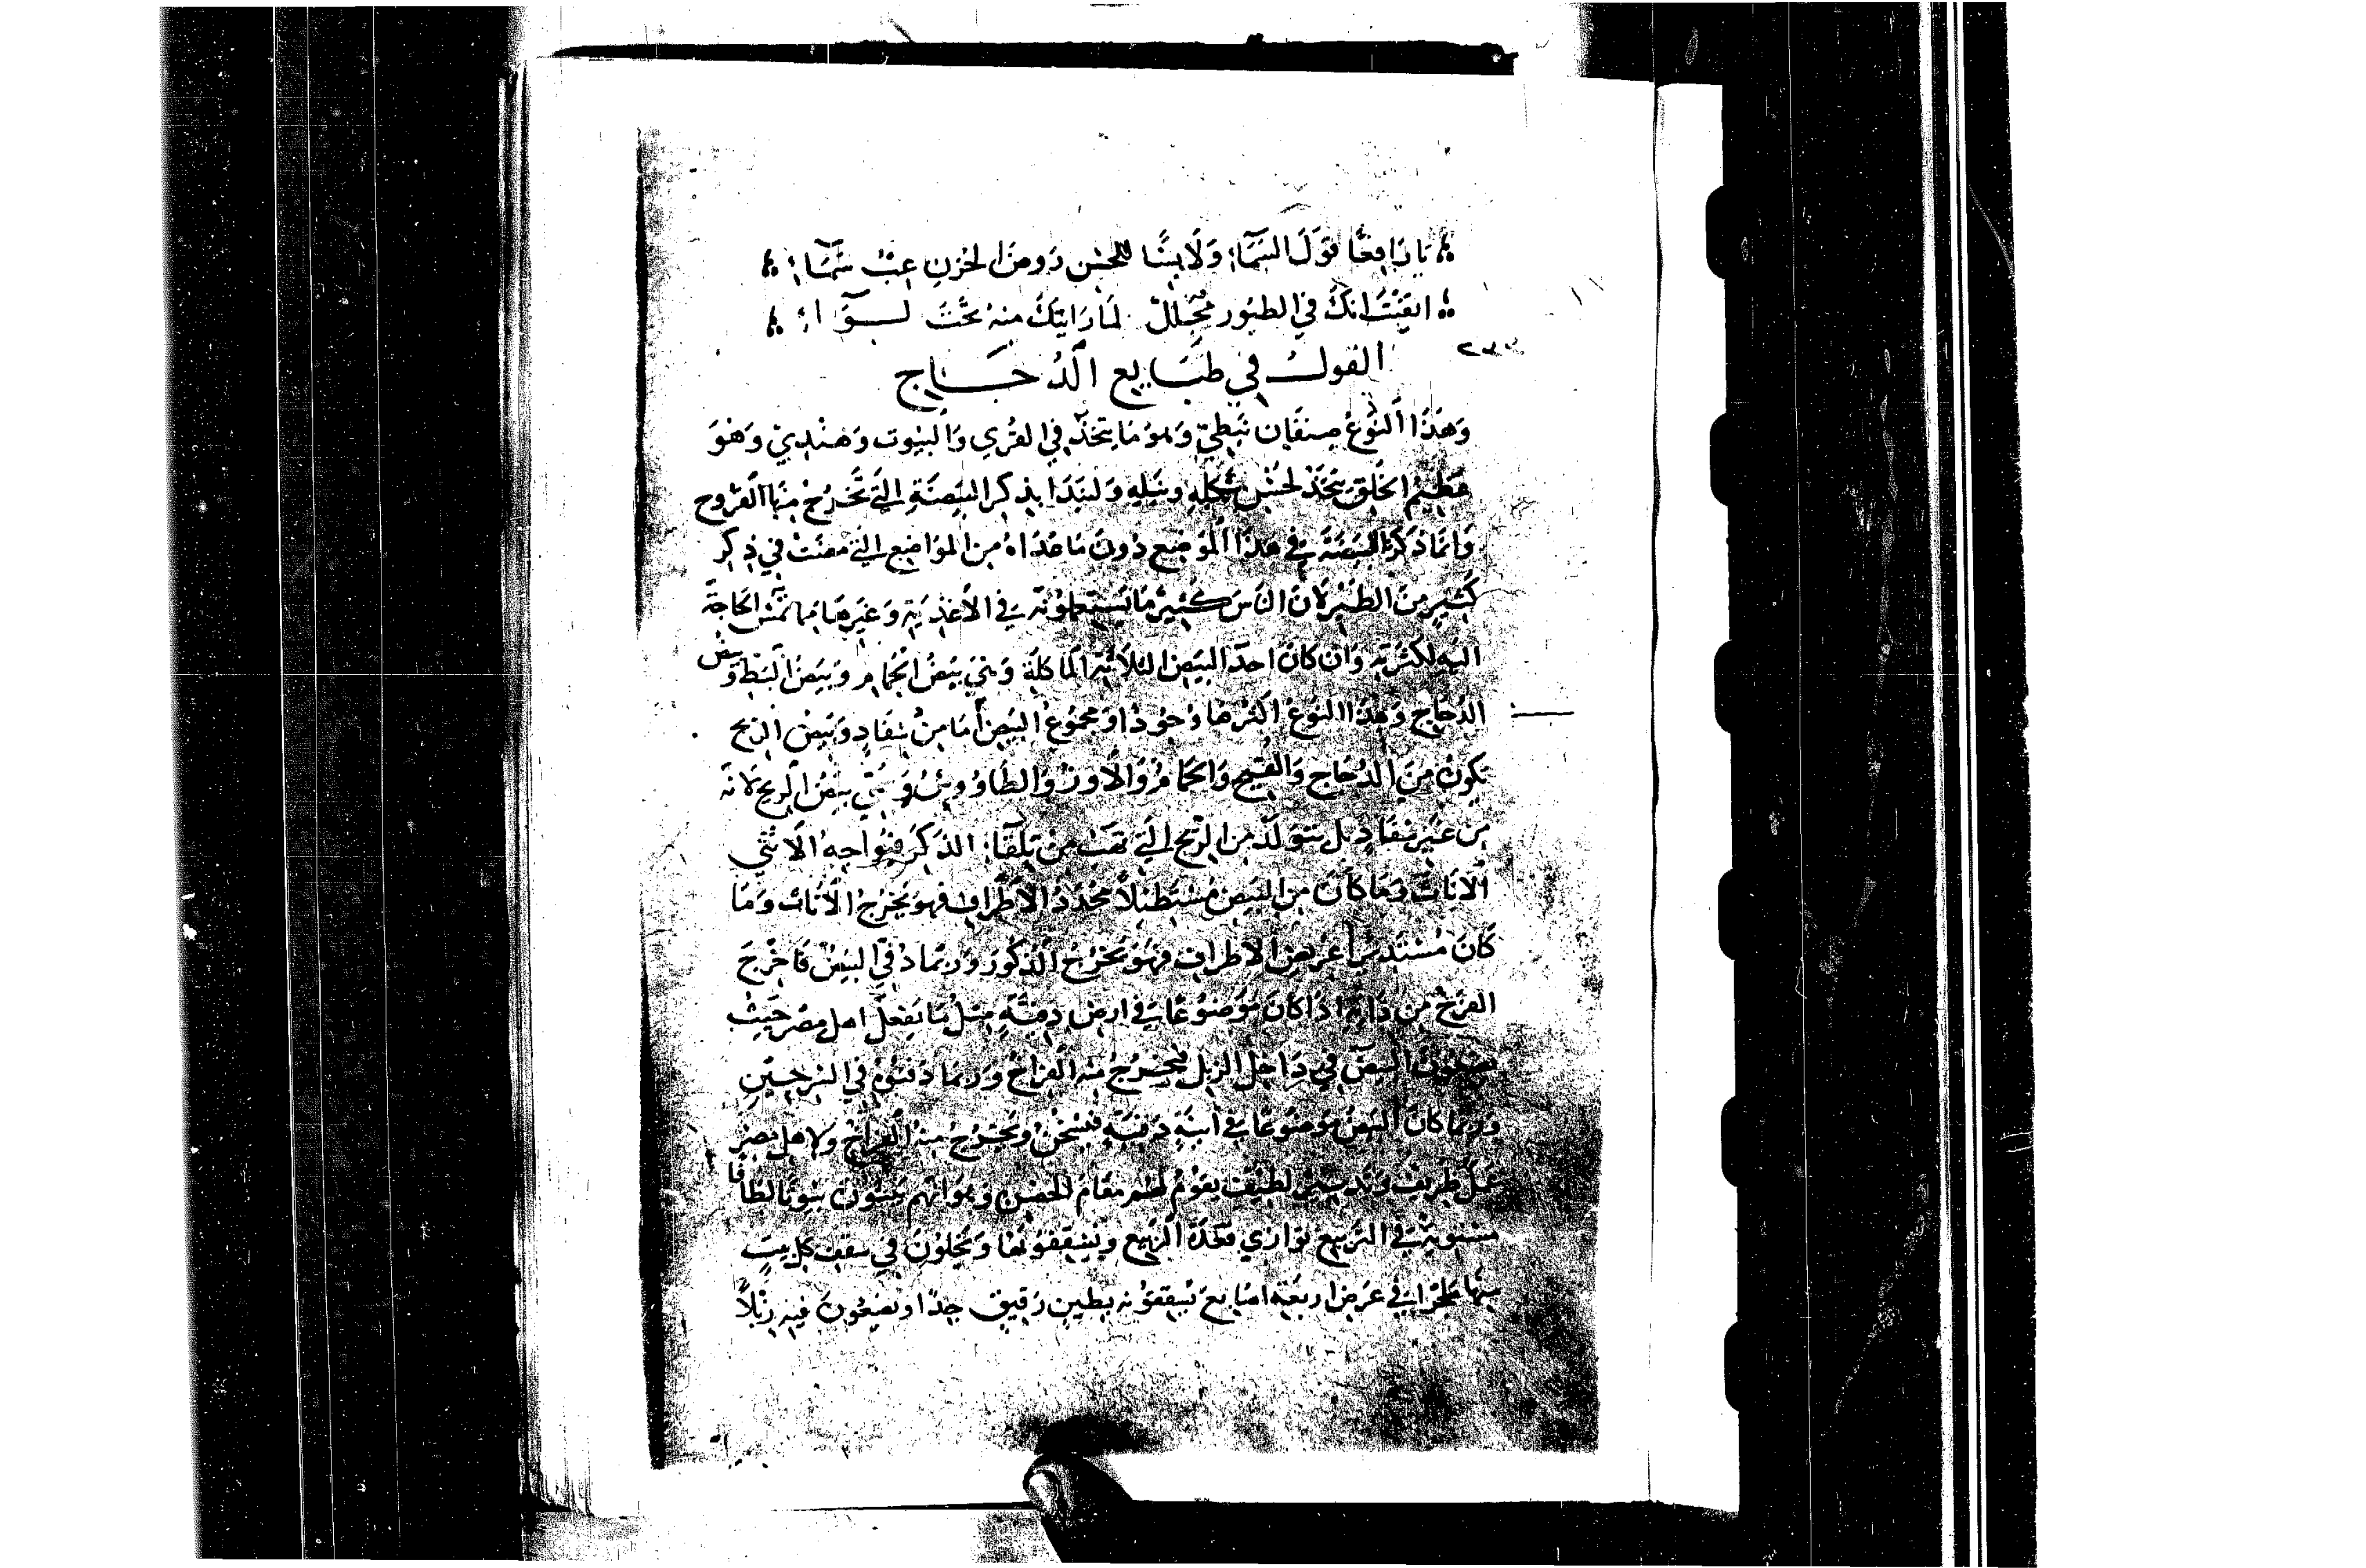 يا رافعا قوَلَ السَمَّاءِ وَلَابِسًا للحسْن رَوضَ الحَزنِ غِبّ سَمَاءِ
ايقنْتُ انكَ في الطيُور مُجَلل لمَا رَايتكَ منهُ تحتَ لـــوَاءِ
٢٣٣
القول في طبَايع الدُجَـــاج
وَهَذا النَوْعُ صِنفَانِ نَبَطِيّ وَهوَ مَا يتخذ في القُرَي وَالبيُوت وَهنْدِيّ وَهوَ
عَظيْم الخَلق يتخَذ لحسْن شكلِهِ وَنبلهِ وَلنبَدَا بذِكر البَيضَةِ التي تخرُج مِنهَا الفرُّوج
وَانمَا ذكرَ البَيضَة في هذا المَوضِع دُونَ مَا عَدَاهُ من المَوَاضِع التي مضتْ في ذِكر
كَثيرٍ مِنَ الطَيْر لاَنَّ النَاسَ كثيرٌ مَا يَستعملوُنَهُ في الاَغذِيَةِ وَغيَرهَا مما تمسّ الحَاجَة
اليْهِ لكثرتِهِ وَان كانَ احدَ البَيض الثلاثَةِ المَاكلَة وَهيَ بَيضُ الحمَامِ وَبَيضُ البَط وَبيض
الدُجَاج وَهذا النَوعُ اكثرهَا وُجُودًا وَمجمُوعُ البَيض امَا مِنْ سِفَادٍ وَبَيضُ الرّيح
يكونُ مِنَ الدُجَاج وَالقبَج وَالحَمامُ وَالاَوَزُ وَالطاوُوسُ وَسُمّي بَيضُ الريح لاَنهُ
مِن غيَر سِفَادٍ بل يتوَلّدُ مِن الرّيح التي تهَبّ مِنْ تِلقَاءِ الذكَر فتُواجهُ الاَنثي
الاَنَاثُ وَمَا كانَ مِن البَيض مُسْتطيلاً مُحَدَدُ الاَطرَافِ فهوَ يُخرجُ الاَنَاث وَمَا
كانَ مُسْتَديرًا عَريضَ الاطرَاف فهُوَ يُخرجُ الذكُورُ وَرُبمَا دُفنَ البَيضُ فاَخرَجَ
الفَرْخُ مِن ذَاتِهِ اذا كانَ مَوْضُوعًا في ارضٍ دَفئَةٍ مِثلُ مَا يَفعلُ اهل مِصْر حَيثُ
يضعُونَ البَيضَ في دَاخِل الزبل فيخرُجُ مِنهُ الفرَاخُ وَربمَا دَفنوُهُ في السَرجينِ
وَربمَا كانَ البَيضُ مَوضوعًا في انيَةٍ دَفئَةٍ فيسْخنُ وَيخرُج مِنهُ الفرَاخُ وَلاهل مِصْر
عَمَلٌ ظريفٌ وَتدبير لطيْف يقوُمُ لهُم مَقامَ الحَضْن وَهوَ انهم يَبنوُنَ بيُوتًا لطافا
مسْتويَةً في التربيع توَازي قعدَة الربيع وَيسَقفونهَا وَيجعلوُنَ في سَقفِ كل بيْتٍ
مِنهَا في عَرض اربَعَة اصَابعَ يسَقفوُنه بطين رَقيق جدًا ويَضعُونَ فيهِ زبْلاً